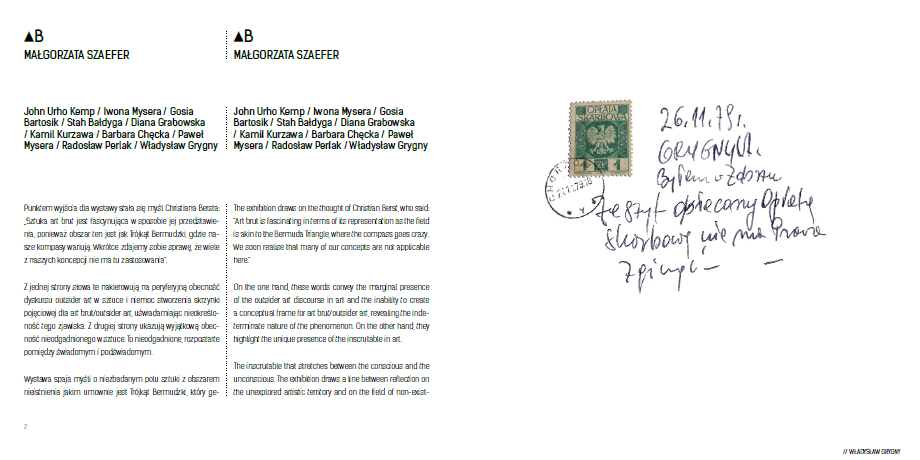 ▲B
MAŁGORZATA SZAEFER
John Urho Kemp / Iwona Mysera / Gosia
Bartosik / Stah Bałdyga / Diana Grabowska
/ Kamil Kurzawa / Barbara Chęcka / Paweł
Mysera / Radosław Perlak / Władysław Grygny
Punktem wyjścia dla wystawy stała się myśl Christiana Bersta:
„Sztuka art brut jest fascynująca w sposobie jej przedstawie-
nia, ponieważ obszar ten jest jak Trójkąt Bermudzki, gdzie na-
sze kompasy wariują. Wkrótce zdajemy sobie sprawę, że wiele
z naszych koncepcji nie ma tu zastosowania".
Z jednej strony słowa te nakierowują na peryferyjną obecność
dyskursu outsider art w sztuce i niemoc stworzenia skrzynki
pojęciowej dla art brut/outsider art, uświadamiając nieokreślo-
ność tego zjawiska. Z drugiej strony ukazują wyjątkową obec-
ność nieodgadnionego w sztuce. To nieodgadnione, rozpostarte
pomiędzy świadomym i podświadomym.
Wystawa spaja myśli o niezbadanym polu sztuki z obszarem
nieistnienia jakim umownie jest Trójkąt Bermudzki, który ge-
2
▲B
MAŁGORZATA SZAEFER
John Urho Kemp / Iwona Mysera / Gosia
Bartosik / Stah Bałdyga / Diana Grabowska
/ Kamil Kurzawa / Barbara Chęcka / Paweł
Mysera / Radosław Perlak / Władysław Grygny
The exhibition draws on the thought of Christian Berst, who said:
"Art brut is fascinating in terms of its representation as the field
is skin to the Bermuda Triangle, where the compass goes crazy.
We soon realize that many of our concepts are not applicable
here."
On the one hand, these words convey the marginal presence
of the outsider art discourse in art and the inability to create
a conceptual frame for art brut/outsider art, revealing the inde-
terminate nature of the phenomenon. On the other hand, they
highlight the unique presence of the inscrutable in art.
The inscrutable that stretches between the conscious and the
unconscious. The exhibition draws a line between reflection on
the unexplored artistic territory and on the field of non-exist-
OPŁATA
SKARBOWA
1 ZŁ 1
26.11.79r.
GRYGNY W.
Byłem w Zdroju
Zeszyt opłecany Opłatą
Skarbową nie ma Prawa
Zginąć –
// WŁADYSŁAW GRYGNY